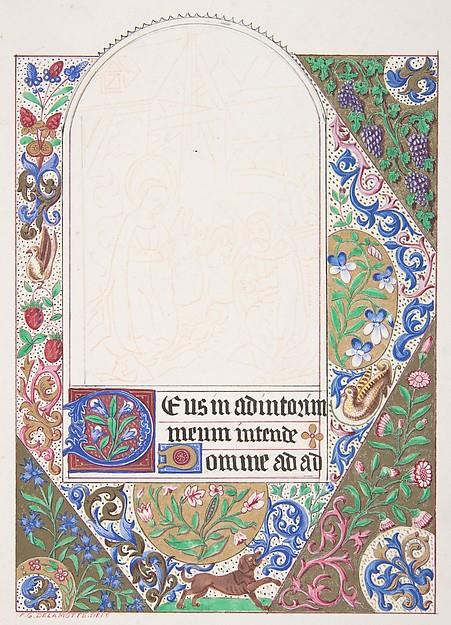 Deus in adintorium
meum intende
Domine ad ad
F.G. DELAMOTTE. DELT